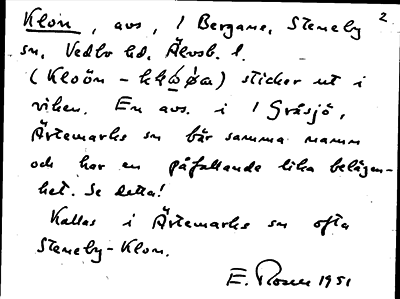 2
Klon, avs, / Bergane, Steneby
sn, Vedbo hd, Älvsb. l.
(Kloön - ) sticker ut i
viken. En avs. i / Gråsjö,
Ärtemarks sn bär samma namn
och har en påfallande lika belägen-
het. Se detta!
Kallas i Ärtemarks sn ofta
Steneby-Klon.
E. Rosell 1951